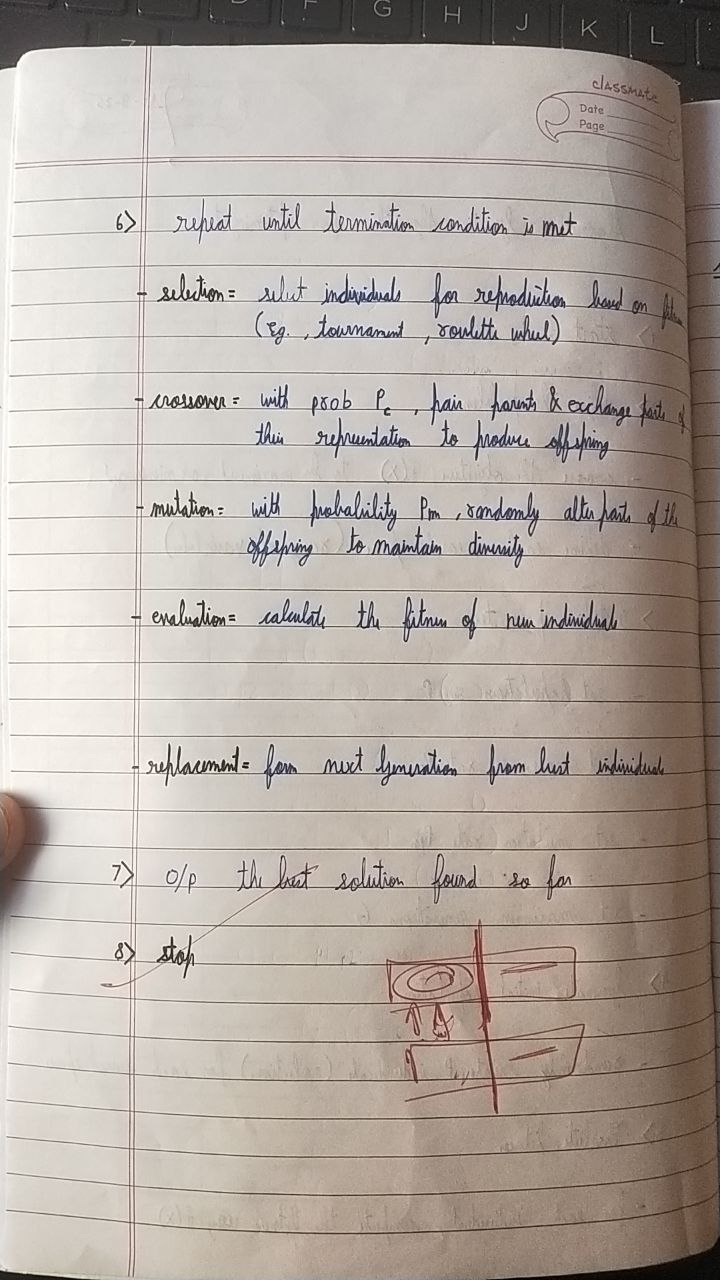 G H J K L
classmate
Date
Page
6> repeat until termination condition is met
- selection = select individuals for reproduction based on
(Eg. , tournament , roulette wheel)
- crossover = with prob Pc , pair parents & exchange parts of
their representation to produce offspring
- mutation = with probability Pm , randomly alter parts of the
offspring to maintain diversity
- evaluation = calculate the fitness of new individuals
- replacement = form next Generation from best individuals
7> O/p the best solution found so far
8> stop